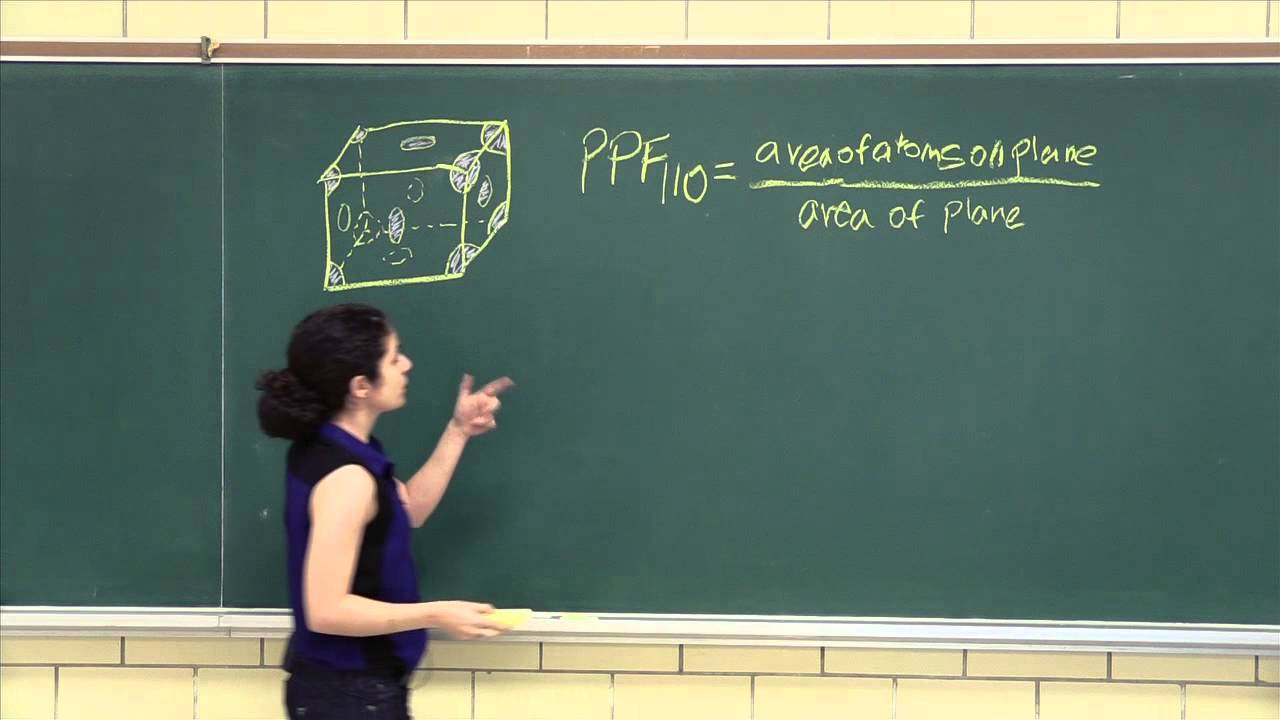 PPF110 = area of atoms on plane
area of plane